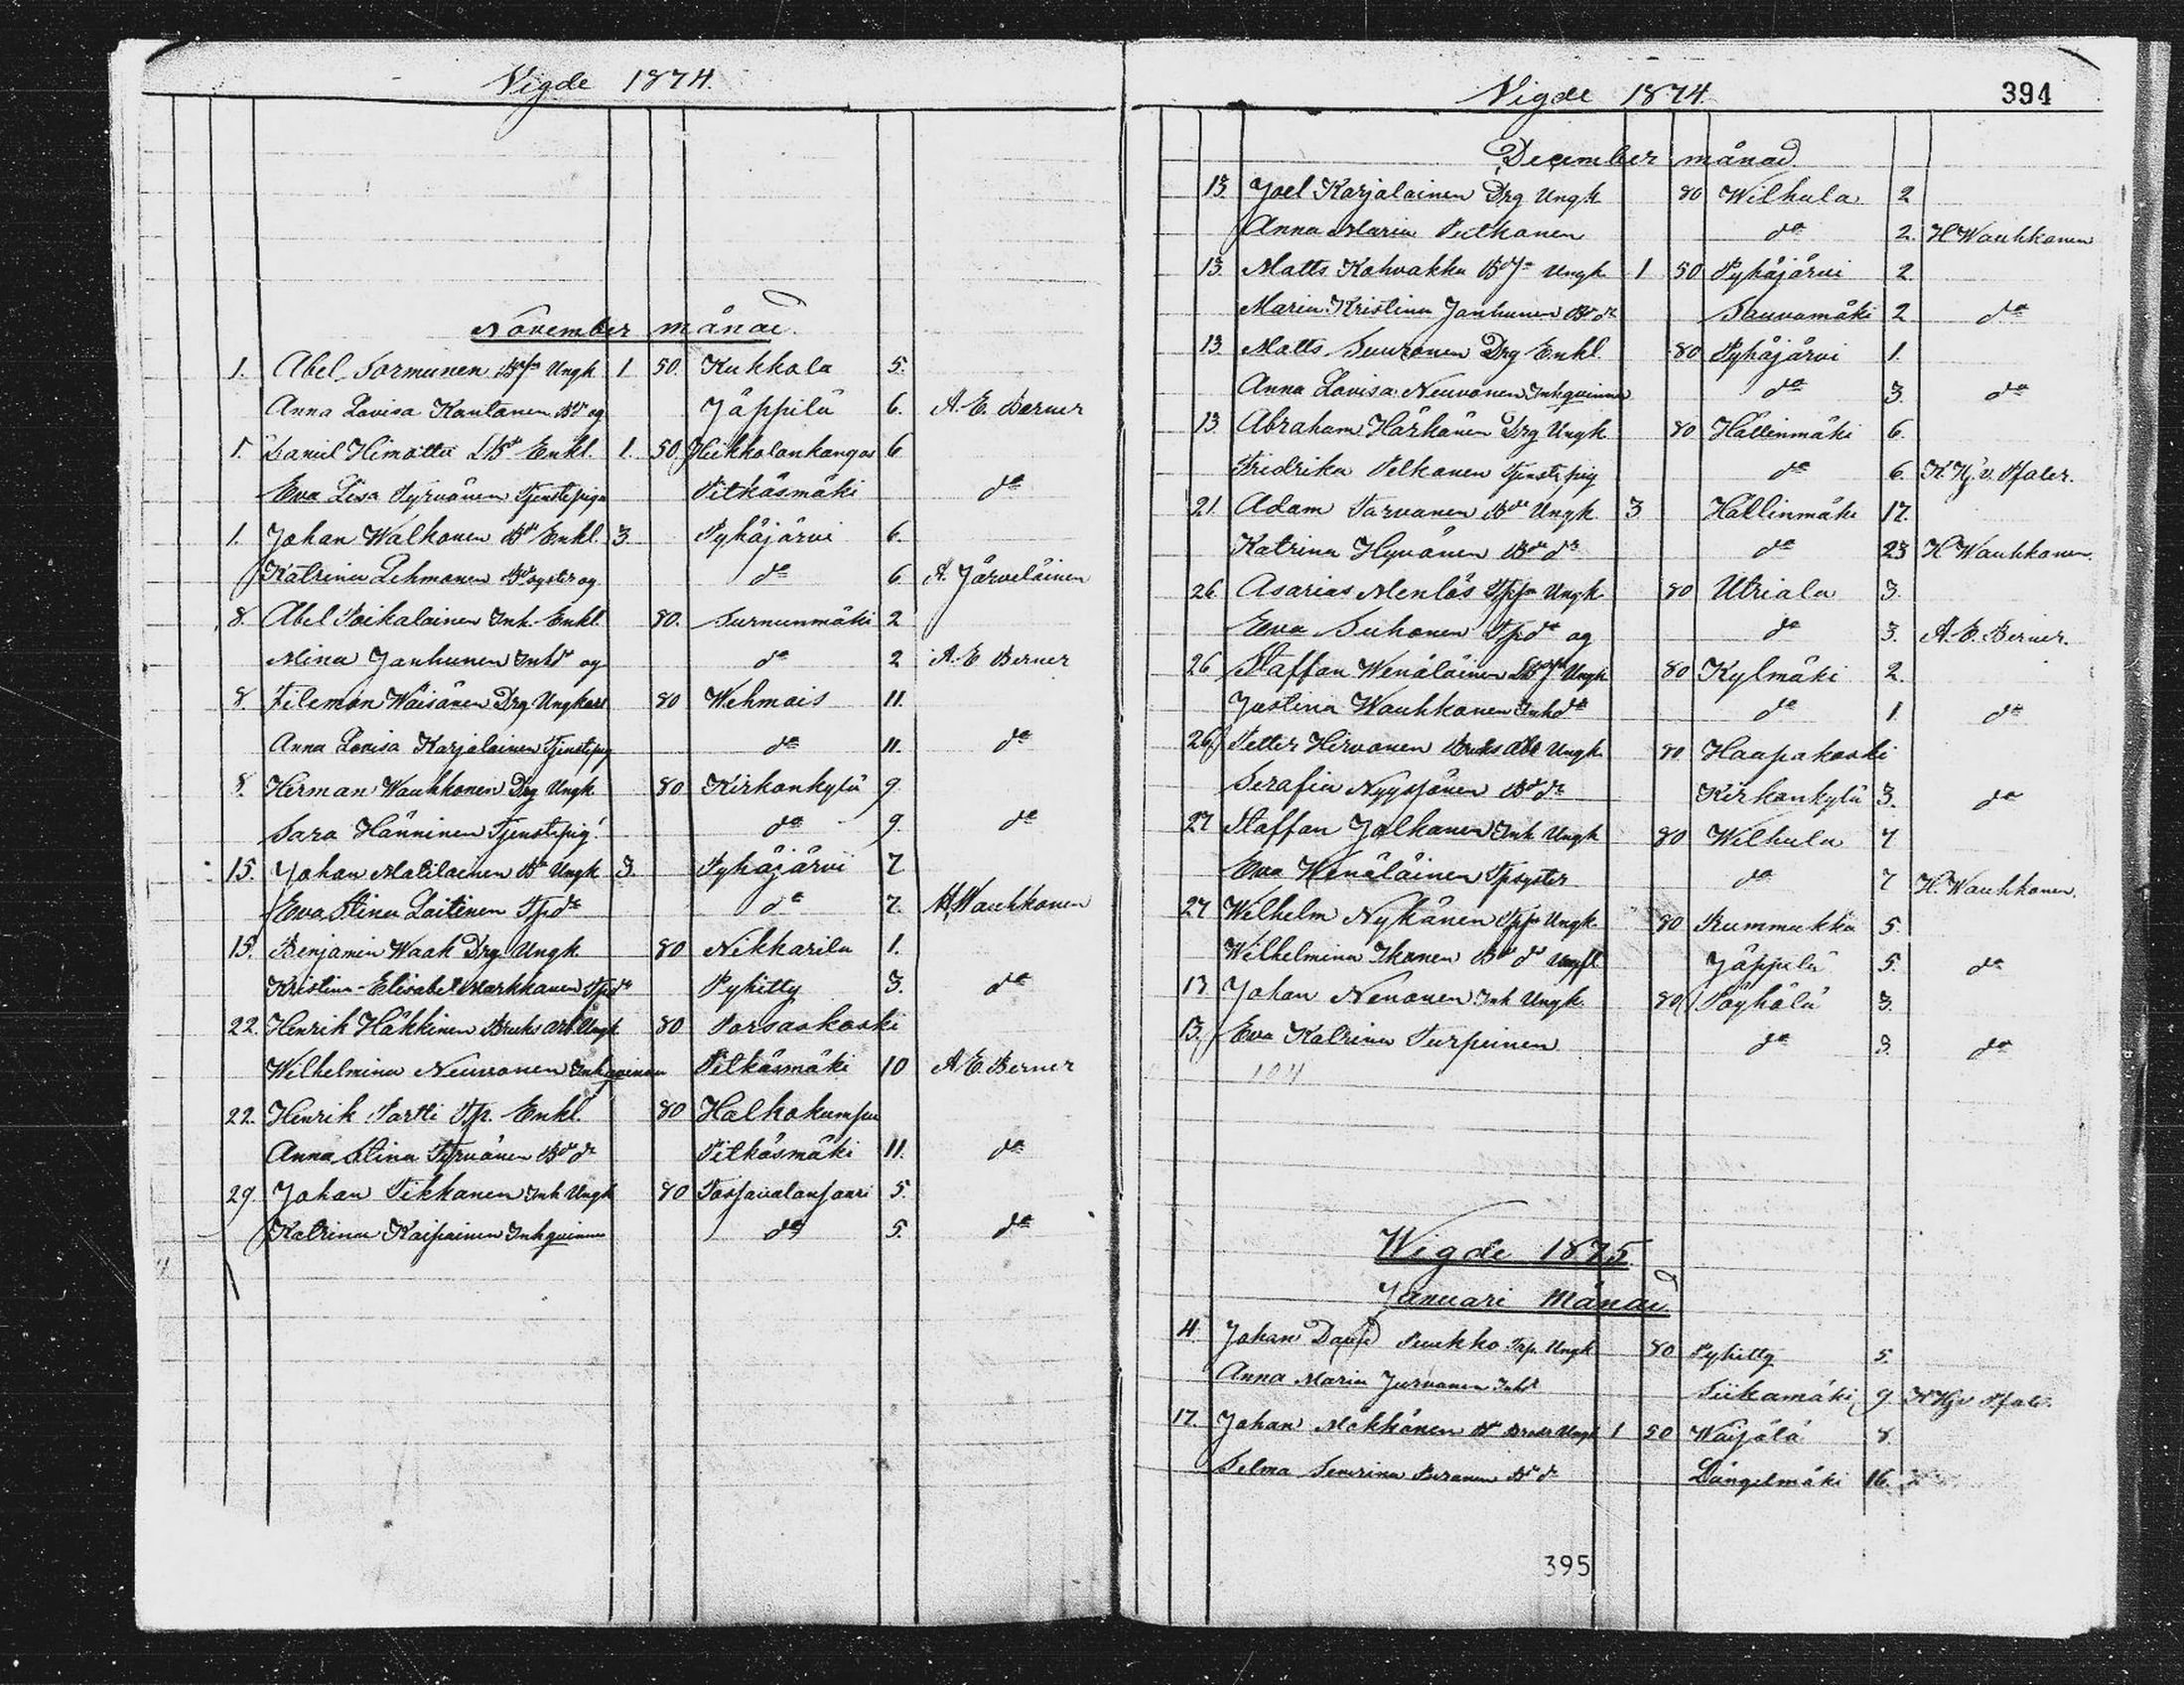 Vigde 1874.
November månad.
1. Abel Sormunen Bdsn Ungk 1 50. Kukkola 5.
Anna Lovisa Kautanen Bde eg Jäppilä 6. A. E. Berner
1. Daniel Himotta LBd Enkl. 1. 50 Heikkolankangas 6
Eva Lisa Tyrvänen Tjenstepiga Pitkäsmäki do
1. Johan Walkonen Bd Enkl. 3. Pyhäjärvi 6.
Katrina Lehmonen Bdsyster eg do 6 A. Järveläinen
8. Abel Poikalainen Inh. Enkl. 80. Surnunmäki 2
Mina Janhunen Inhdr eg do 2 A. E Berner
8. Filemon Wäisänen Drg Ungkarl 80 Wehmais 11.
Anna Lovisa Karjalainen Tjenstepig do 11. do
8. Herman Wauhkonen Drg Ungk 80 Kirkonkylä 9
Sara Hänninen Tjenstepig. do 9. do
15. Johan Matilainen Bd Ungk 3. Pyhäjärvi 7
Eva Stina Laitinen Tpdr do 7. H. Wauhkonen
15. Benjamin Waak Drg Ungk. 80 Nikkarila 1.
Kristina Elisabet Markkanen Tpdr Pyhitty 3. do
22. Henrik Häkkinen Bruks arb. Ungk 80 Porsaskoski
Wilhelmina Neuvonen Inhqvinna Pitkäsmäki 10 A. E. Berner
22. Henrik Partti Tp. Enkl. 80 Halkokumpu
Anna Stina Tyrvänen Bde dr Pitkäsmäki 11. do
29. Johan Tikkanen Inh Ungk 80 Tospavalansaari 5.
Katrina Kaipainen Inhqvinna do 5. do
Vigde 1874. 394
December månad.
13. Joel Karjalainen Drg Ungk 80 Wilhula 2
Anna Maria Putkonen do 2. H Wauhkonen
13. Matts Kohvakka Bdsn Ungk 1 50 Pyhäjärvi 2
Maria Kristina Janhunen Bde dr Sauvamäki 2 do
13. Matts Suuronen Drg Enkl. 80 Pyhäjärvi 1.
Anna Lovisa Neuvonen Inhqvinna do 3. do
13. Abraham Härkönen Drg Ungk 80 Hällinmäki 6.
Fredrika Pelkonen Tjenstepig do 6. K. Hj. v. Pfaler.
21. Adam Tarvanen Bde Ungk. 3 Hällinmäki 17.
Katrina Hyvönen Bde dr do 23 H Wauhkonen.
26. Asarias Menlös Tpsn Ungk 80 Utriala 3.
Eeva Suhonen Tpdr eg do 3. A. E. Berner.
26 Staffan Wenäläinen Ungk 80 Kylmäki 2.
Justina Wauhkonen Inhdr do 1. do
26. Petter Hirvonen Bruks arb Ungk. 80 Haapakoski
Serafia Nyyssönen Bde dr Kirkonkylä 3. do
27 Staffan Jalkanen Inh Ungk 80 Wilhula 7
Eva Wenäläinen Tpsyster do 7 H. Wauhkonen.
27 Wilhelm Nykänen Tpsn Ungk. 80 Rummukka 5.
Wilhelmina Ikonen Bde dr Jäppilä 5. do
13 Johan Nenonen Inh Ungk. 80 Pöyhölä 3.
13. Eva Katrina Turpeinen do 3. do
104
Wigde 1875.
Januari Månad
4. Johan David Puukko Trp. Ungk 80 Pyhitty 5.
Anna Maria Jurvanen Inhdr Siikamäki 9 K Hj v Pfaler.
17. Johan Mökkönen Bd Broder Ungk 1 50 Waijälä 8.
Selma Severina Puranen Bde dr Längelmäki 16.
395